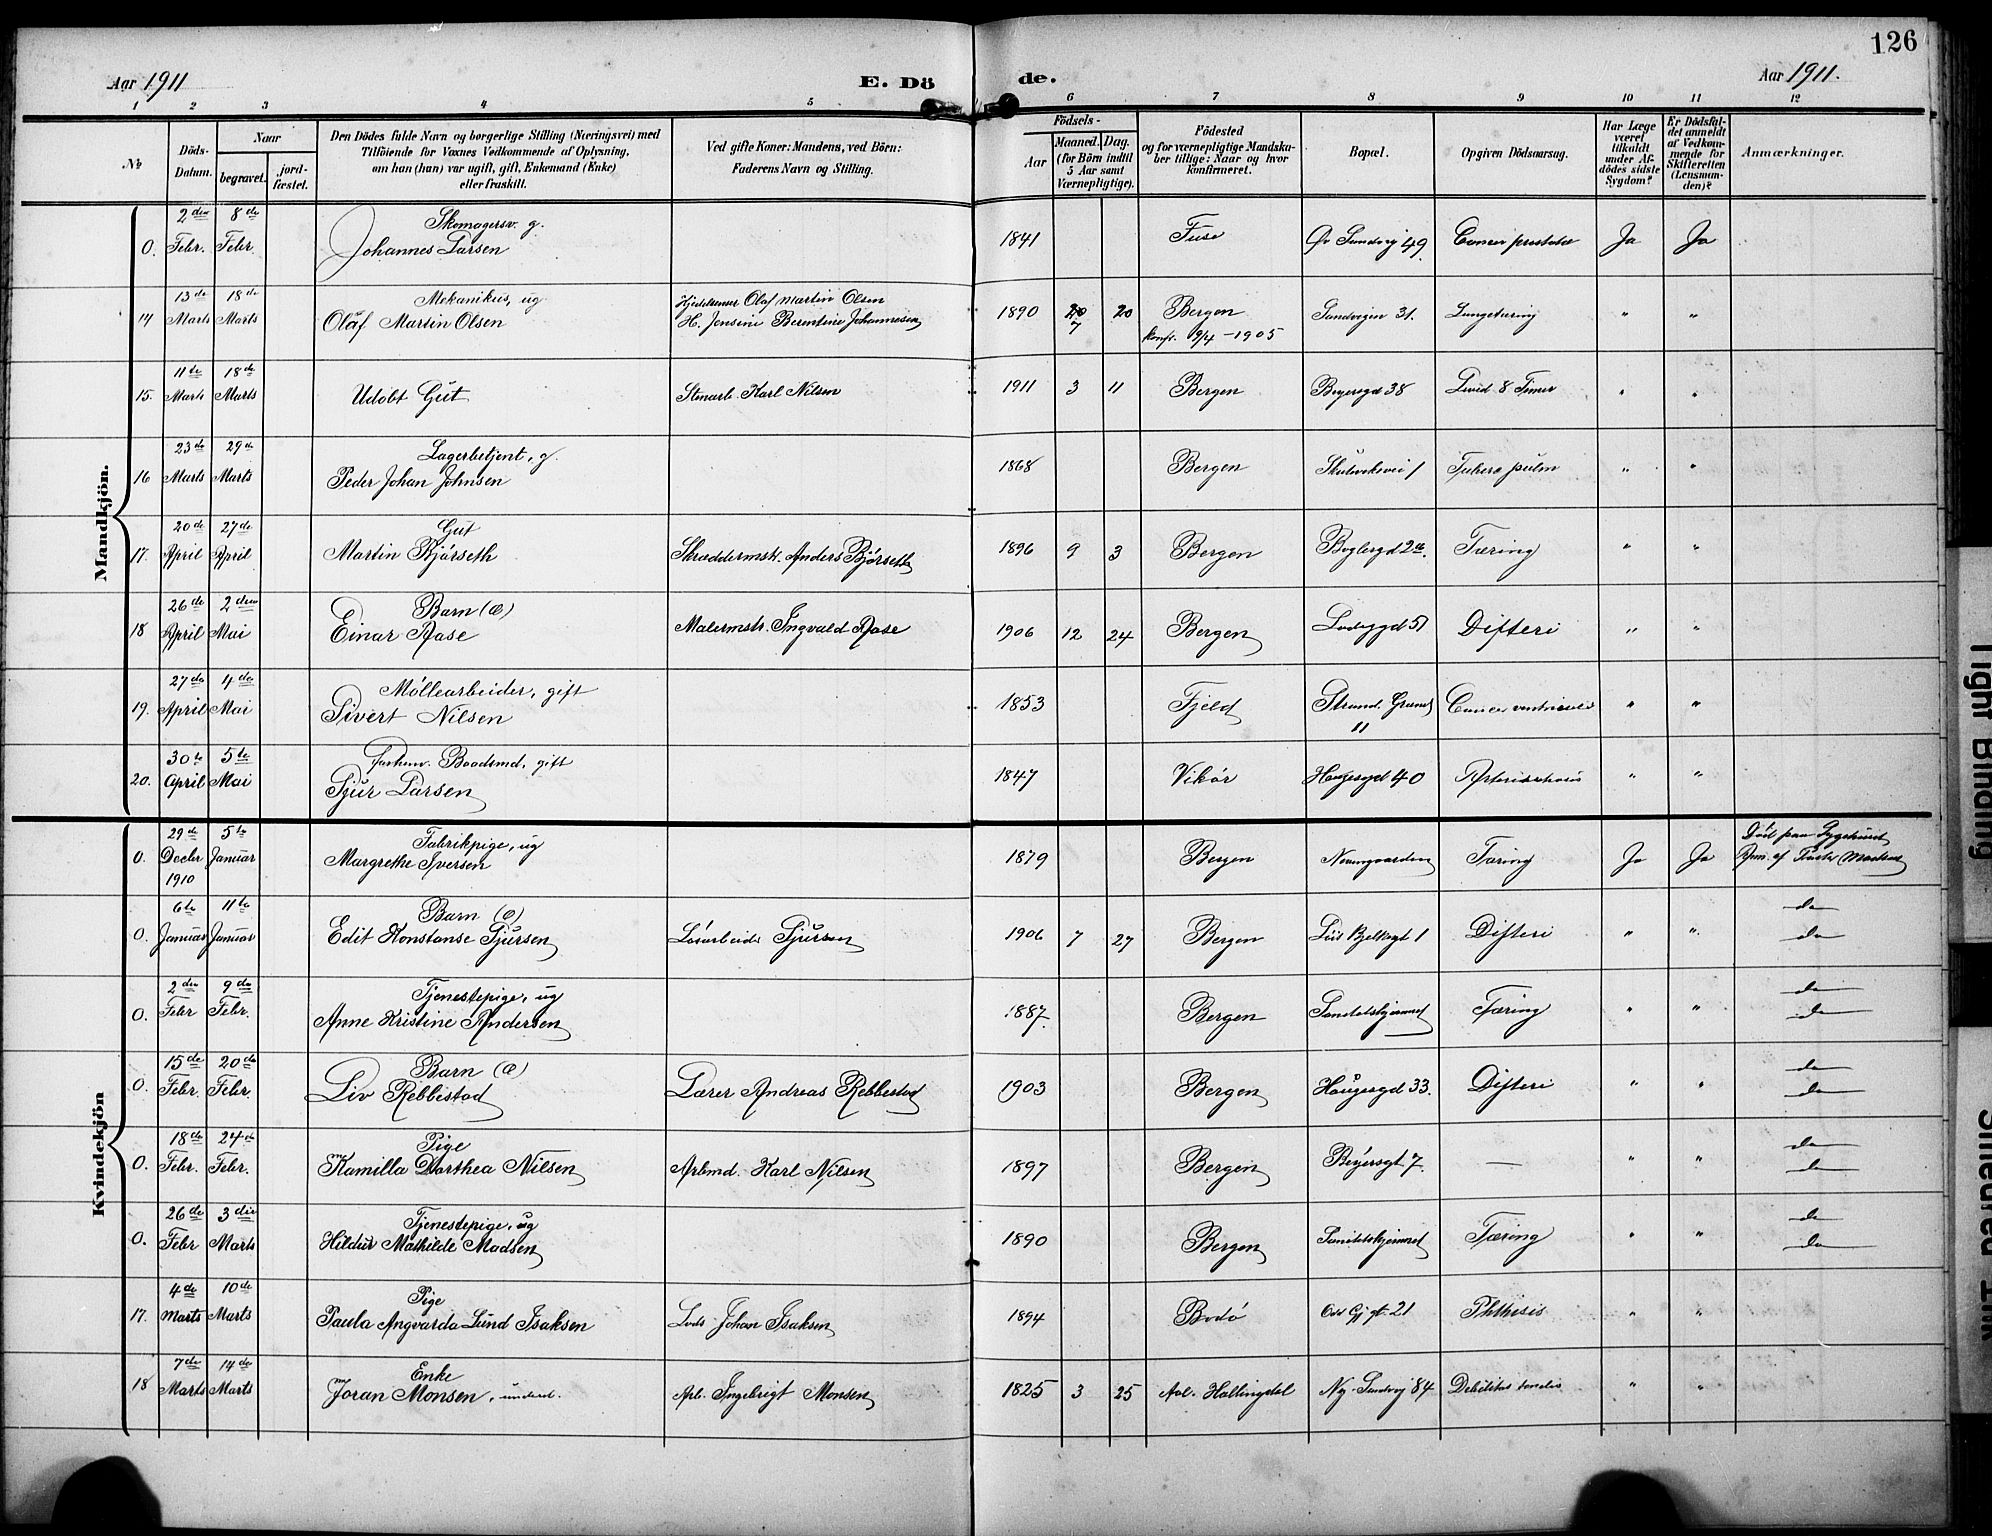 126
Aar 1911
E. Dö
de.
Aar 1911.
1 2 3 4 5 6 7 8 9 10 11 12
No
Döds-Datum.
Naar
begravet.
jord-fæstet.
Den Dödes fulde Navn og borgerlige Stilling (Næringsvei) med
Tilföiende for Voxnes Vedkommende af Oplysning,
om han (hun) var ugift, gift, Enkemand (Enke)
eller fraskilt.
Ved gifte Koner: Mandens, ved Börn:
Faderens Navn og Stilling.
Födsels-
Aar
Maaned. Dag.
(for Börn indtil
5 Aar samt
Værnepligtige).
Födested
og for værnepligtige Mandska-
ber tillige: Naar og hvor
konfirmeret.
Bopæl.
Opgiven Dödsaarsag.
Har Læge
været
tilkaldt
under Af-
dödes sidste
Sygdom?
Er Dödsfal-
det anmeldt
af Vedkom-
mende for
Skifteretten
(Lensman-
den)?
Anmærkninger.
Mandkjön.
2den 8de Skomagersv. g.
0. Febr. Febr. Johannes Larsen 1841 Fuse Øv Sandvig 49 Cancer prostatae Ja Ja
13de 18de Mekanikus, ug Olaf Martin Olsen
14 Marts Marts Olaf Martin Olsen H. Jensine Berentine Johannesen 1890 7 20 Bergen Sandvegen 31. Lungetæring " "
konf. 9/4 - 1905
11te 18de
15. Marts Marts Udøbt Gut Stenarb. Karl Nilsen 1911 3 11 Bergen Beyersgd 38 Levid 8 Timer " "
23de 29de Lagerbetjent, g.
16 Marts Marts Peder Johan Johnsen 1868 Bergen Skuteviksvei 1 Tuberc pulm " "
20de 27de Gut
17. April April Martin Bjørseth Skræddermstr. Anders Bjørseth 1896 9 3 Bergen Bøglersgd 2a. Tæring " "
26de 2den Barn (æ)
18 April Mai Einar Aase Malermstr. Ingvald Aase 1906 12 24 Bergen Difteri " "
27de 4de Møllearbeider, gift
19. April Mai Sivert Nilsen 1853 Fjeld Strand Cancer ventriculi " "
11
30te 5te Baadsmd, gift
20. April Mai Sjur Larsen 1847 Vikør Haugesgd 40 " "
Kvindekjön
29de 5te Fabrikpige, ug Død paa Sygehuset
0. Decbr Januar Margrethe Iversen 1879 Bergen Neumgaarden Tæring Ja Ja Anm. af
1910
6te 11te Barn (æ) do
0. Januar Januar Edit Konstanse Sjursen Løsarbeider Sjursen 1906 7 27 Bergen Difteri " " do
2den 9de Tjenestepige, ug do
0. Febr Febr. Anne Kristine Andersen 1887 Bergen Sanitetshjemmet Tæring " " do
15de 20de Barn (æ) do
0. Febr. Febr. Liv Rebbestad Lærer Andreas Rebbestad 1903 Bergen Haugesgd 33. Difteri " " do
18de 24de Pige do
0. Febr. Febr. Kamilla Dorthea Nilsen Arbmd. Karl Nilsen 1897 Bergen Beyersgt 7. — " " do
26de 3die Tjenestepige, ug do
0. Febr Marts Hildur Mathilde Madsen 1890 Bergen Sanitetshjemmet Tæring " " do
4de 10de Pige
17. Marts Marts Paula Angvarda Lund Isaksen Lods Johan Isaksen 1894 Bodø 21 Phthisis " "
7de 14de Enke
18 Marts Marts Joran Monsen, underst. Arb. Ingebrigt Monsen 1825 3 25 Aal. Hallingdal Ny-Sandvig 84 Debilitas senilis " "
Tight Binding
Smeared Ink